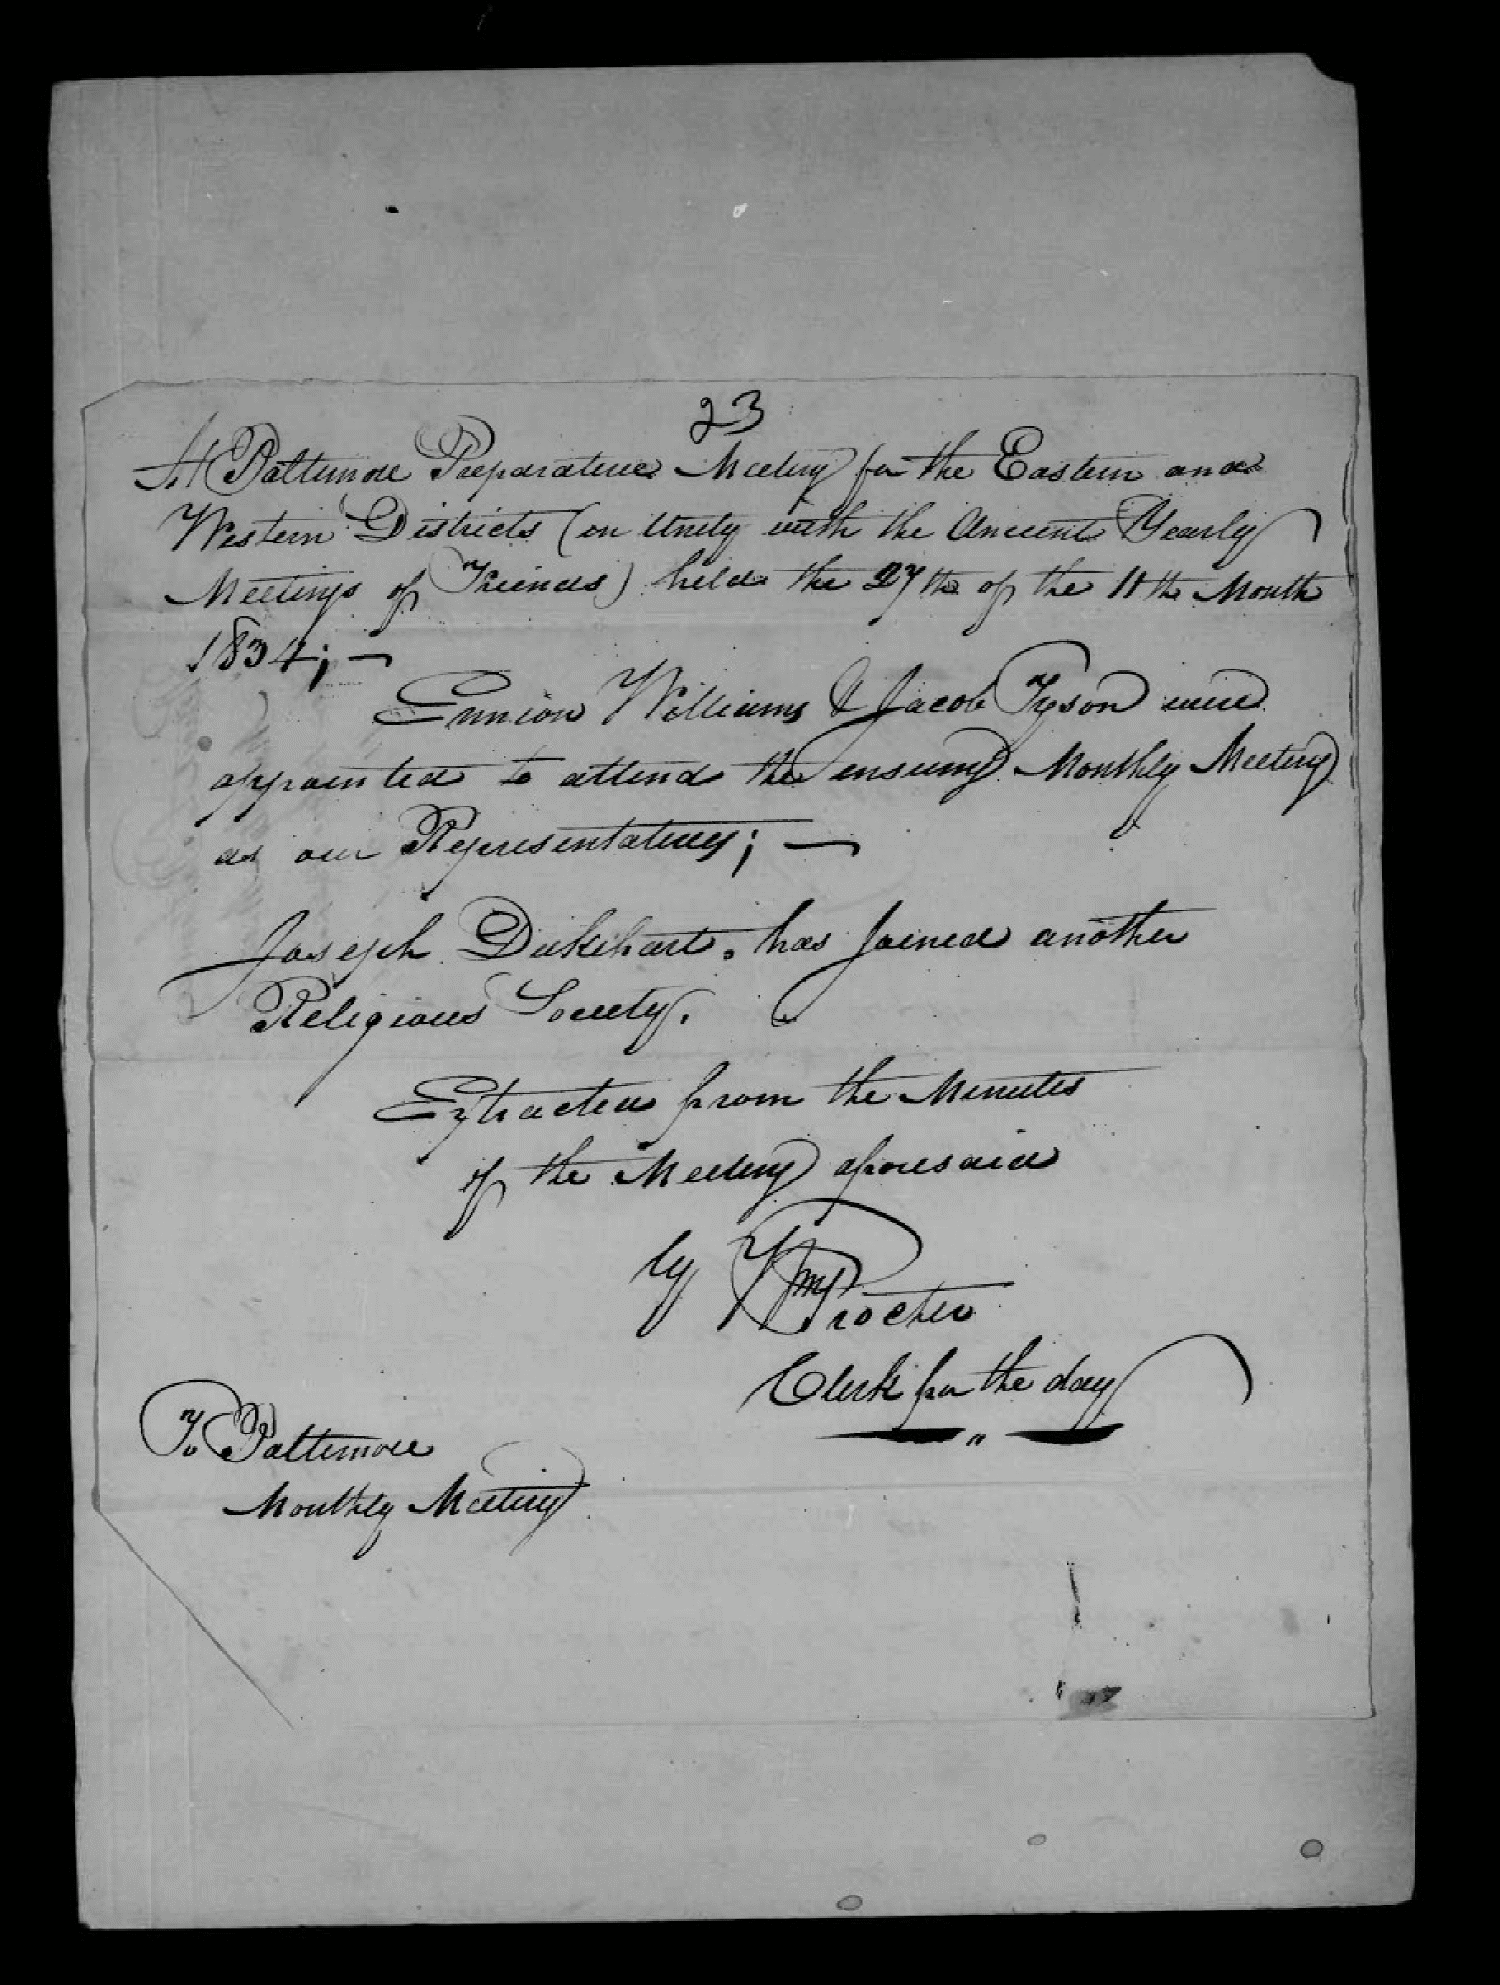 23
At Baltimore Preparative Meeting for the Eastern and
Western Districts (in Unity with the Ancient Yearly
Meetings of Friends) held the 27th of the 11th Month
1834; —
Ennion Williams & Jacob Tyson were
appointed to attend the ensuing Monthly Meeting
as our Representatives; —
Joseph Dukehart. has Joined another
Religious Society.
Extracted from the Minutes
of the Meeting aforesaid
by Wm Procter
Clerk for the day
"
To Baltimore
Monthly Meeting